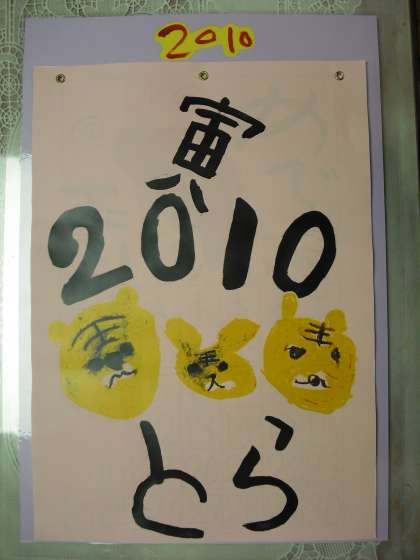 2010
寅
2010
とら